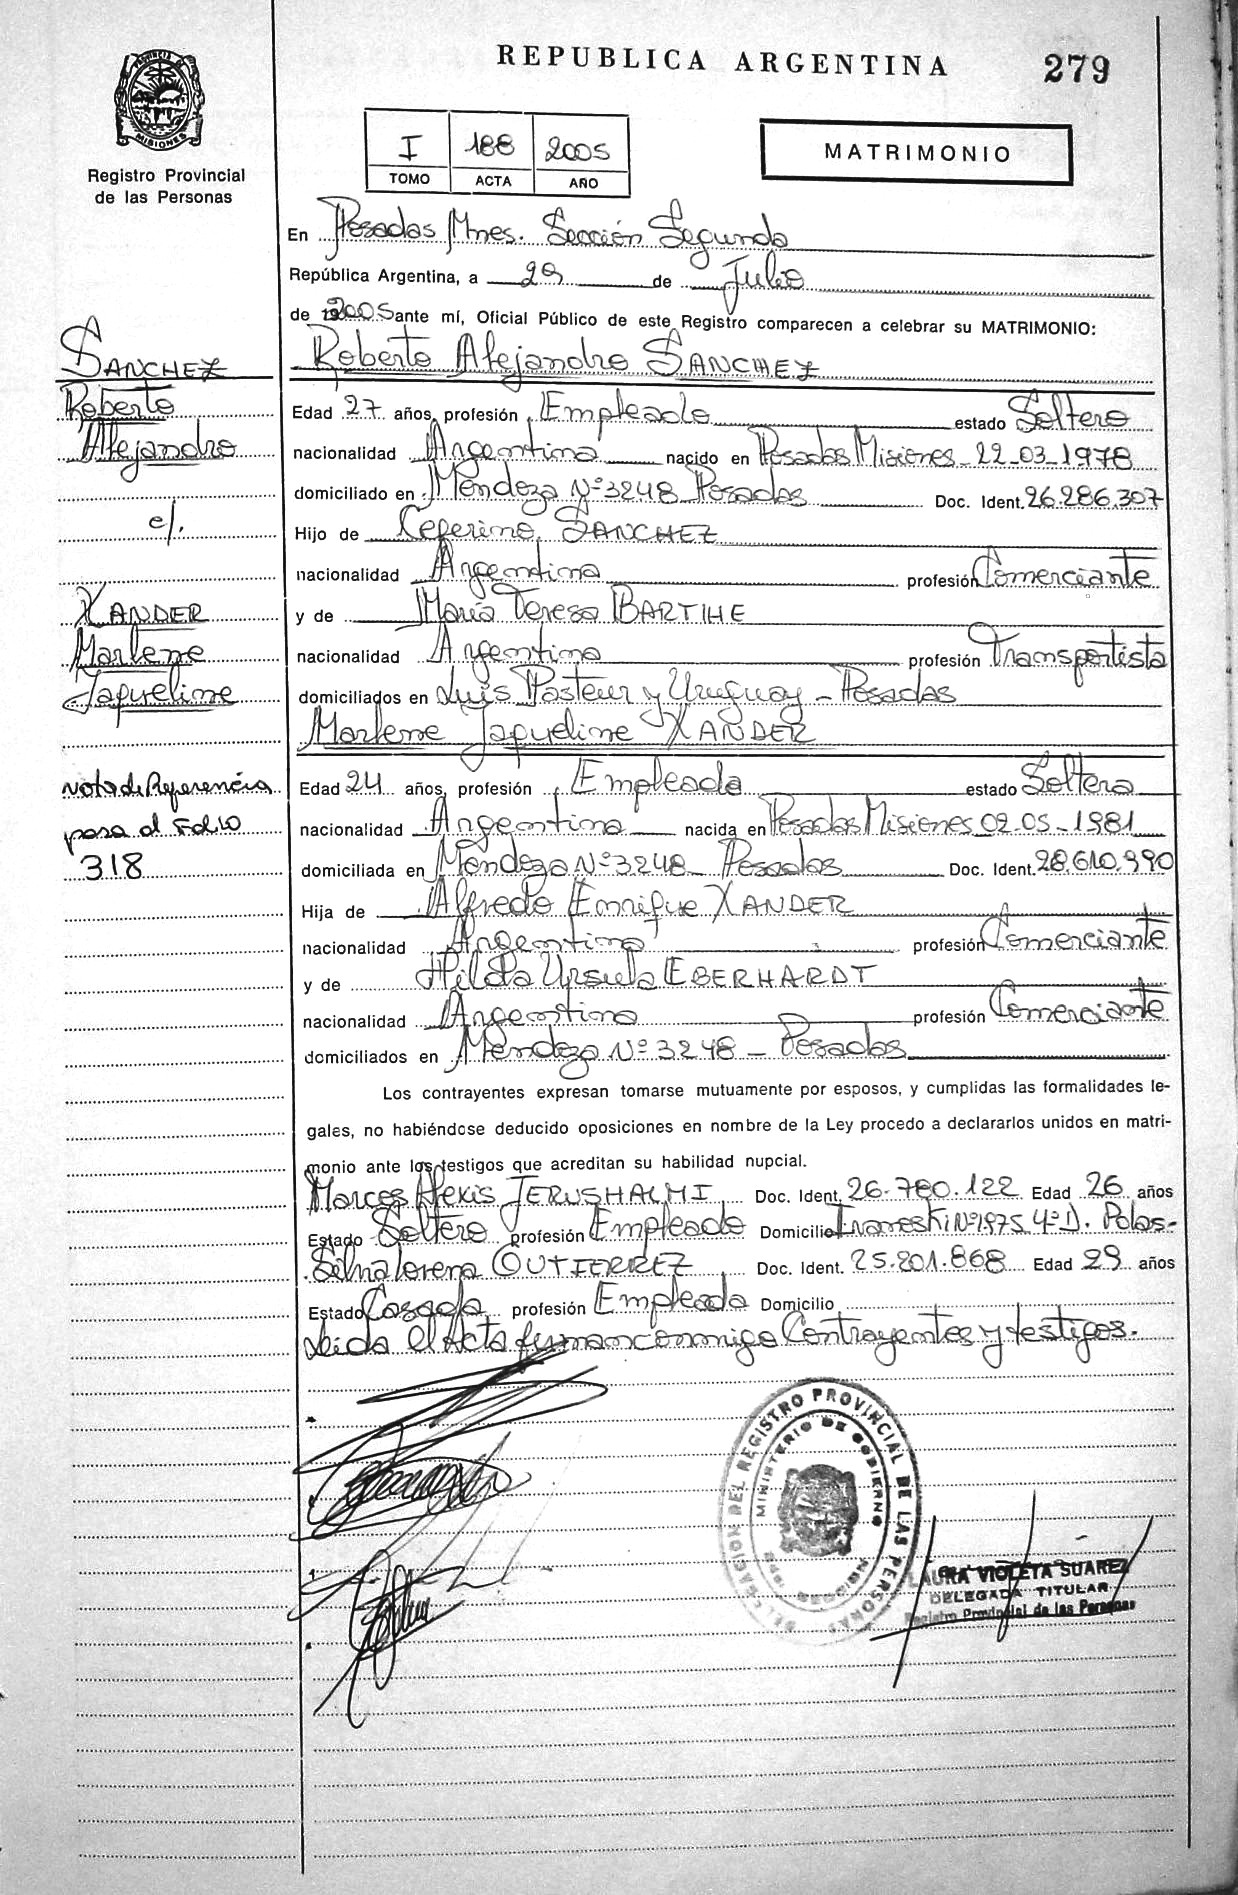 REPUBLICA ARGENTINA
279
MISIONES
Registro Provincial
de las Personas
I 188 2005
TOMO ACTA AÑO
MATRIMONIO
En Posadas Mnes. Sección Segunda
República Argentina, a 29 de Julio
de 2005 ante mí, Oficial Público de este Registro comparecen a celebrar su MATRIMONIO:
Roberto Alejandro SANCHEZ
Edad 27 años, profesión Empleado estado Soltero
nacionalidad Argentina nacido en Posadas Misiones - 22-03-1978
domiciliado en Mendoza Nº 3248 Posadas Doc. Ident. 26.286.307
Hijo de Ceferino SANCHEZ
nacionalidad Argentina profesión Comerciante
y de María Teresa BARTIHE
nacionalidad Argentina profesión Transportista
domiciliados en Luis Pasteur y Uruguay - Posadas
Marlene Jaqueline XANDER
Edad 24 años, profesión Empleada estado Soltera
nacionalidad Argentina nacida en Posadas Misiones 02-05-1981
domiciliada en Mendoza Nº 3248 Posadas Doc. Ident. 28.610.990
Hija de Alfredo Enrique XANDER
nacionalidad Argentina profesión Comerciante
y de Hilda Ursula EBERHARDT
nacionalidad Argentina profesión Comerciante
domiciliados en Mendoza Nº 3248 - Posadas
Los contrayentes expresan tomarse mutuamente por esposos, y cumplidas las formalidades le-
gales, no habiéndose deducido oposiciones en nombre de la Ley procedo a declararlos unidos en matri-
monio ante los testigos que acreditan su habilidad nupcial.
Marcos Alexis JERUSHALMI Doc. Ident. 26.780.122 Edad 26 años
Estado Soltero profesión Empleado Domicilio Nº 1975 4º D. Pdas-
Silvia Lorena GUTIERREZ Doc. Ident. 25.201.868 Edad 29 años
Estado Casada profesión Empleada Domicilio
Leida el Acta firman conmigo Contrayentes y testigos.
SANCHEZ
Roberto
Alejandro
c/.
XANDER
Marlene
Jaqueline
Nota de Referencia
pasa al Folio
318
DELEGACION DEL REGISTRO PROVINCIAL DE LAS PERSONAS
MINISTERIO DE GOBIERNO
LAURA VIOLETA SUAREZ
DELEGADA TITULAR
Registro Provincial de las Personas